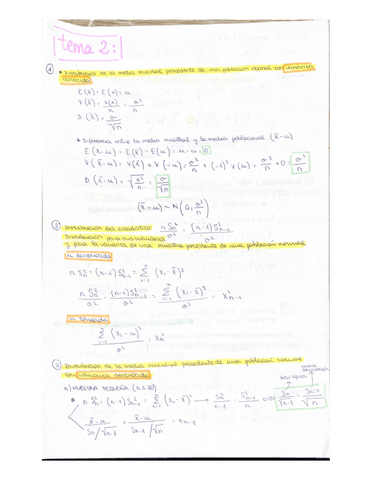 tema 2:
① * Distribución de la media muestral procedente de una población normal con varianza
conocida
E(x̄) = E(x) = μ
V(x̄) = V(x)/n = σ²/n
D(x̄) = σ/√n
* Diferencia entre la media muestral y la media poblacional (x̄-μ)
E(x̄-μ) = E(x̄) - E(μ) = μ-μ = 0
V(x̄-μ) = V(x̄) + V(-μ) = σ²/n + (-1)² V(μ) = σ²/n + 0 = σ²/n
D(x̄-μ) = √σ²/n = σ/√n
(x̄-μ) ~ N(0, σ²/n)
② Distribución del estadístico n·Sn²/σ² = (n-1)S²n-1/σ²
Distribución para
y para la varianza de una muestra procedente de una población normal
μ desconocida
n Sn² = (n-1)S²n-1 = Σ (xi - x̄)²
n·Sn²/σ² = (n-1)S²n-1/σ² = Σ (xi - x̄)²/σ² = χ²n-1
μ conocida
Σ (xi - μ)²/σ² = χn²
③ Distribución de la media muestral procedente de una población normal
con varianza desconocida
a) MUESTRA PEQUEÑA (n≤30)
* n Sn² = (n-1)S²n-1 = Σ (xi - x̄)² → Sn²/n-1 = S²n-1/n ⇒ Sn/√n-1 = Sn-1/√n
* x̄-μ / Sn/√n-1 = x̄-μ / Sn-1/√n = tn-1